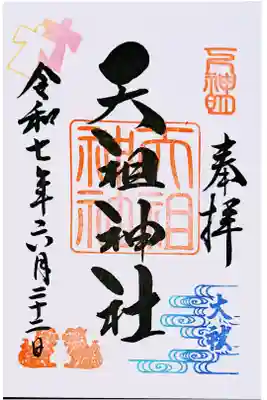 奉拝
大祓
天祖神社
天祖
神社
令和七年六月二十二日